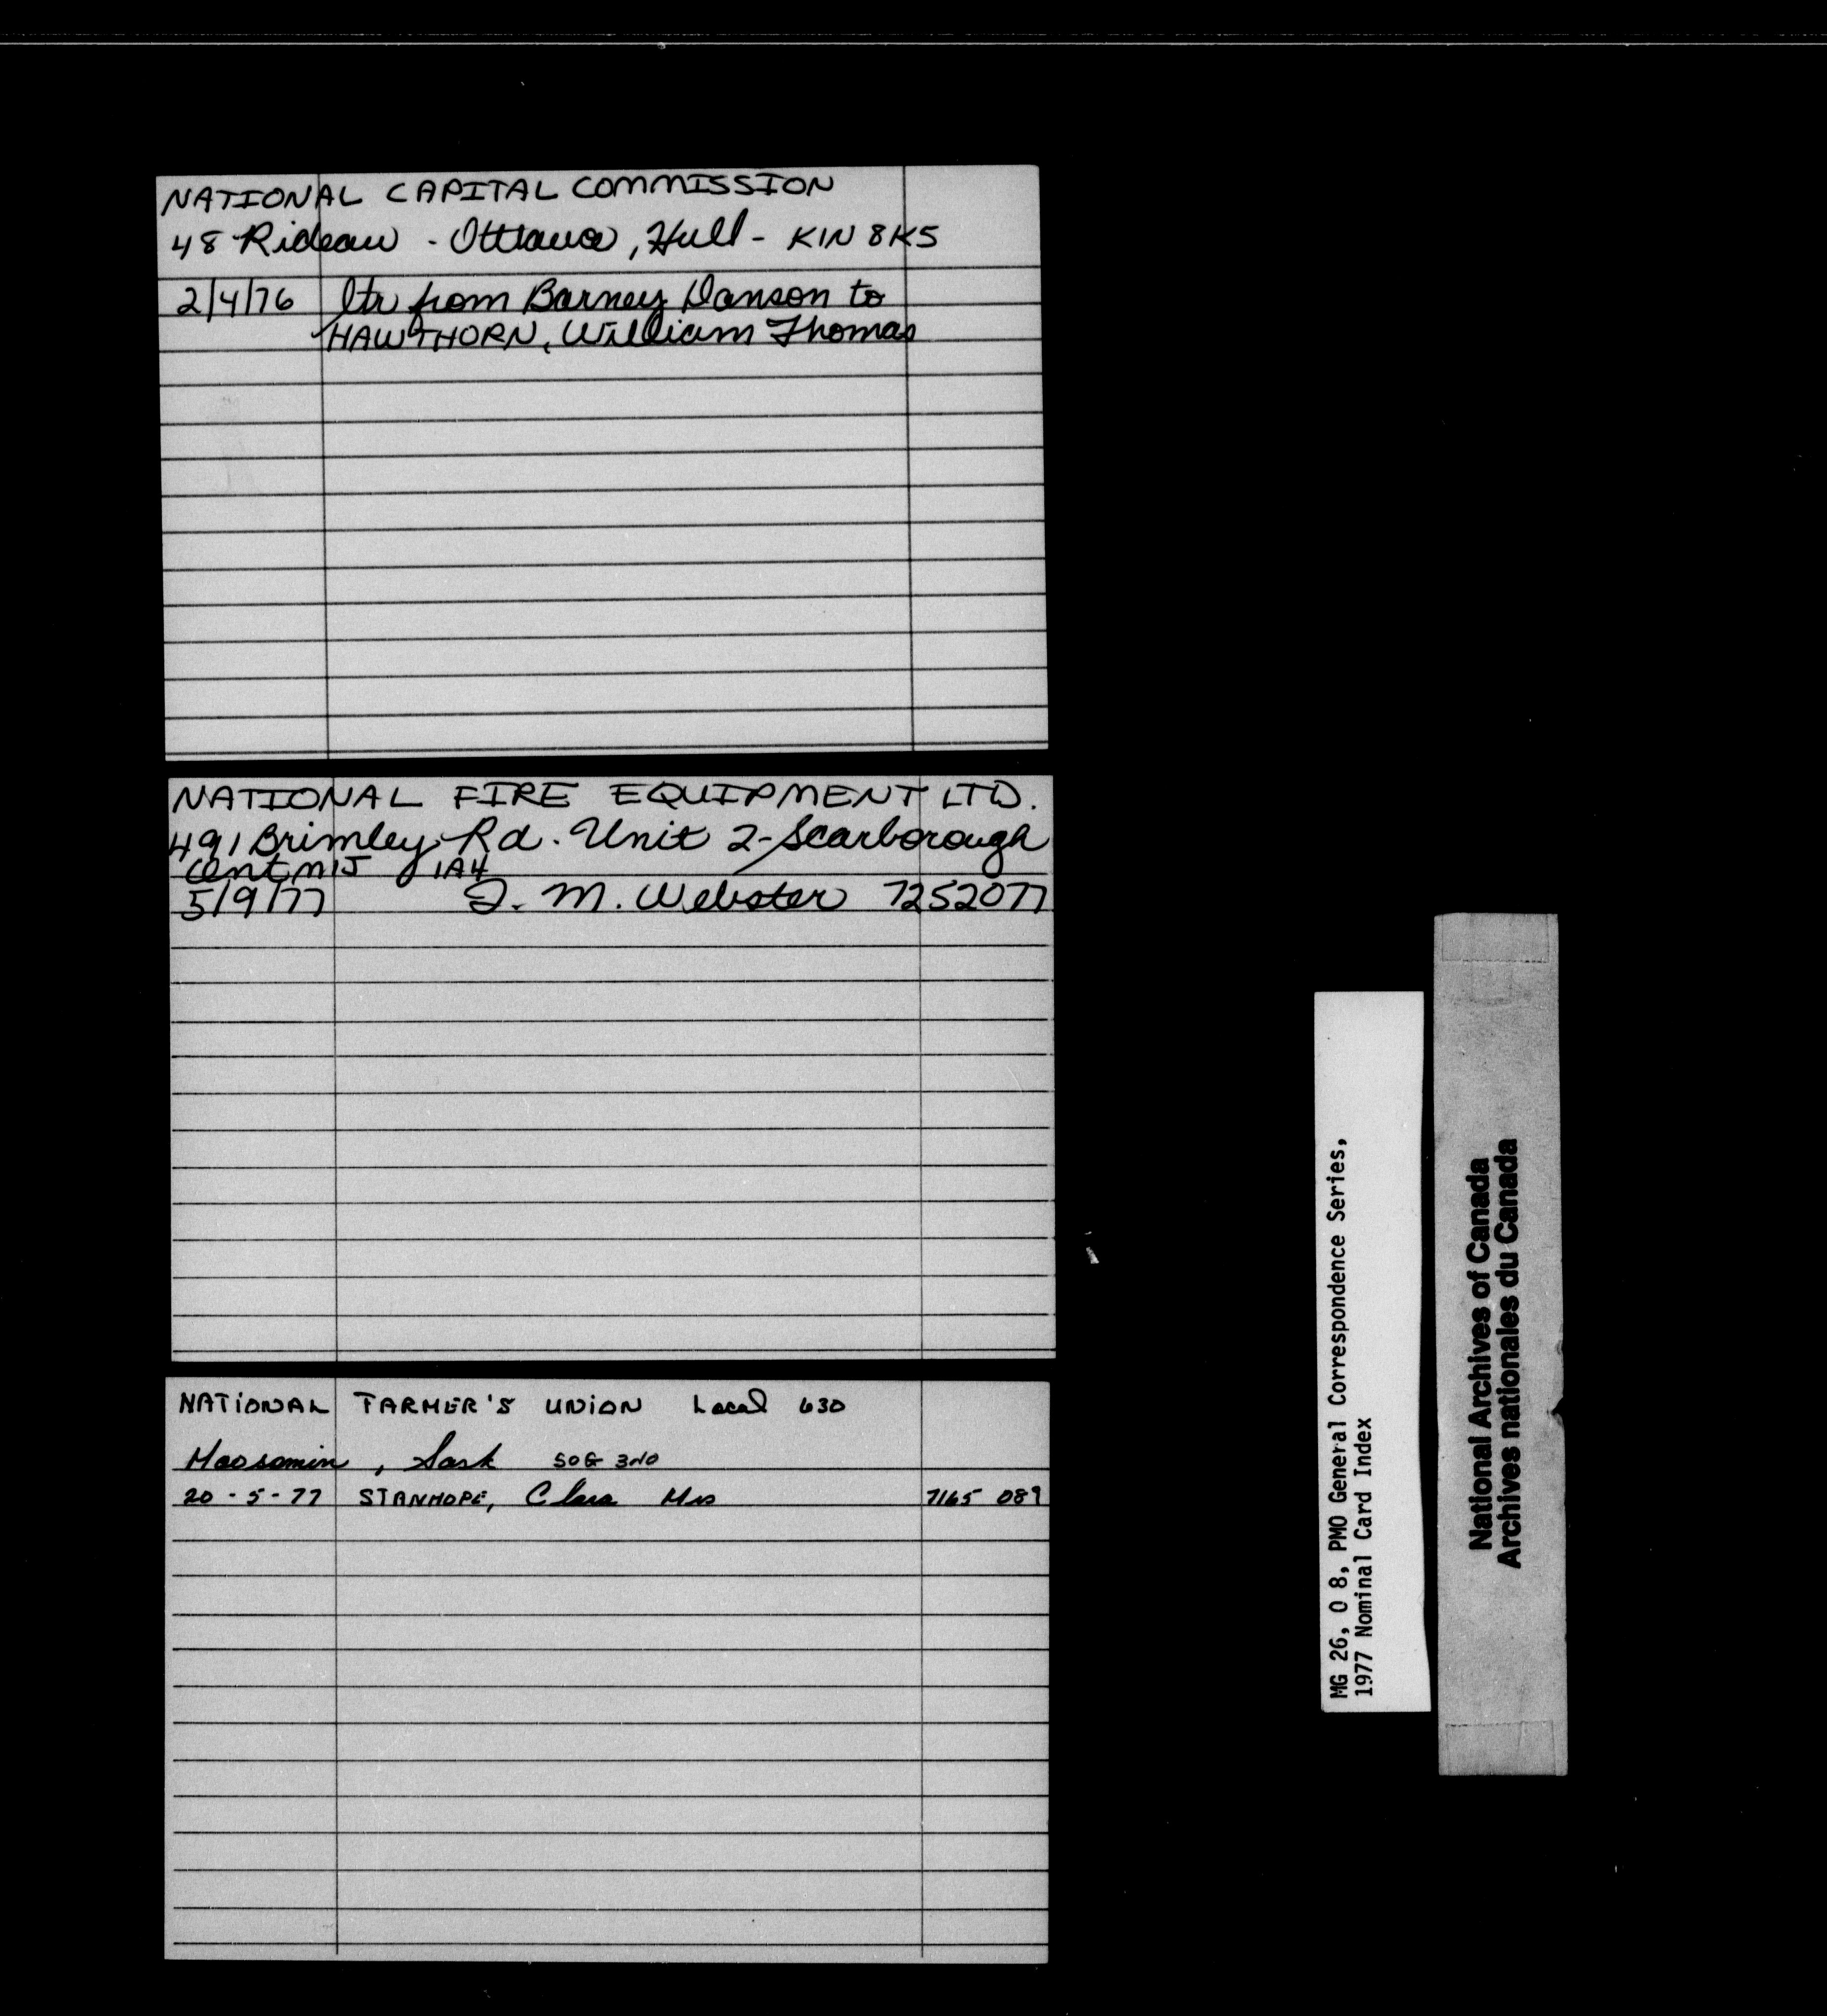 NATIONAL CAPITAL COMMISSION
48 Rideau - Ottawa, Hull - K1N 8K5
2/4/76 ltr from Barney Danson to
HAWTHORN, William Thomas
NATIONAL FIRE EQUIPMENT LTD.
491 Brimley Rd. Unit 2 - Scarborough
Ont. M1J 1A4
5/9/77 I. M. Webster 7252077
NATIONAL FARMER'S UNION Local 630
Moosomin, Sask S0G 3N0
20-5-77 STANHOPE, Clara Mrs 7165 089
MG 26, O 8, PMO General Correspondence Series,
1977 Nominal Card Index
National Archives of Canada
Archives nationales du Canada